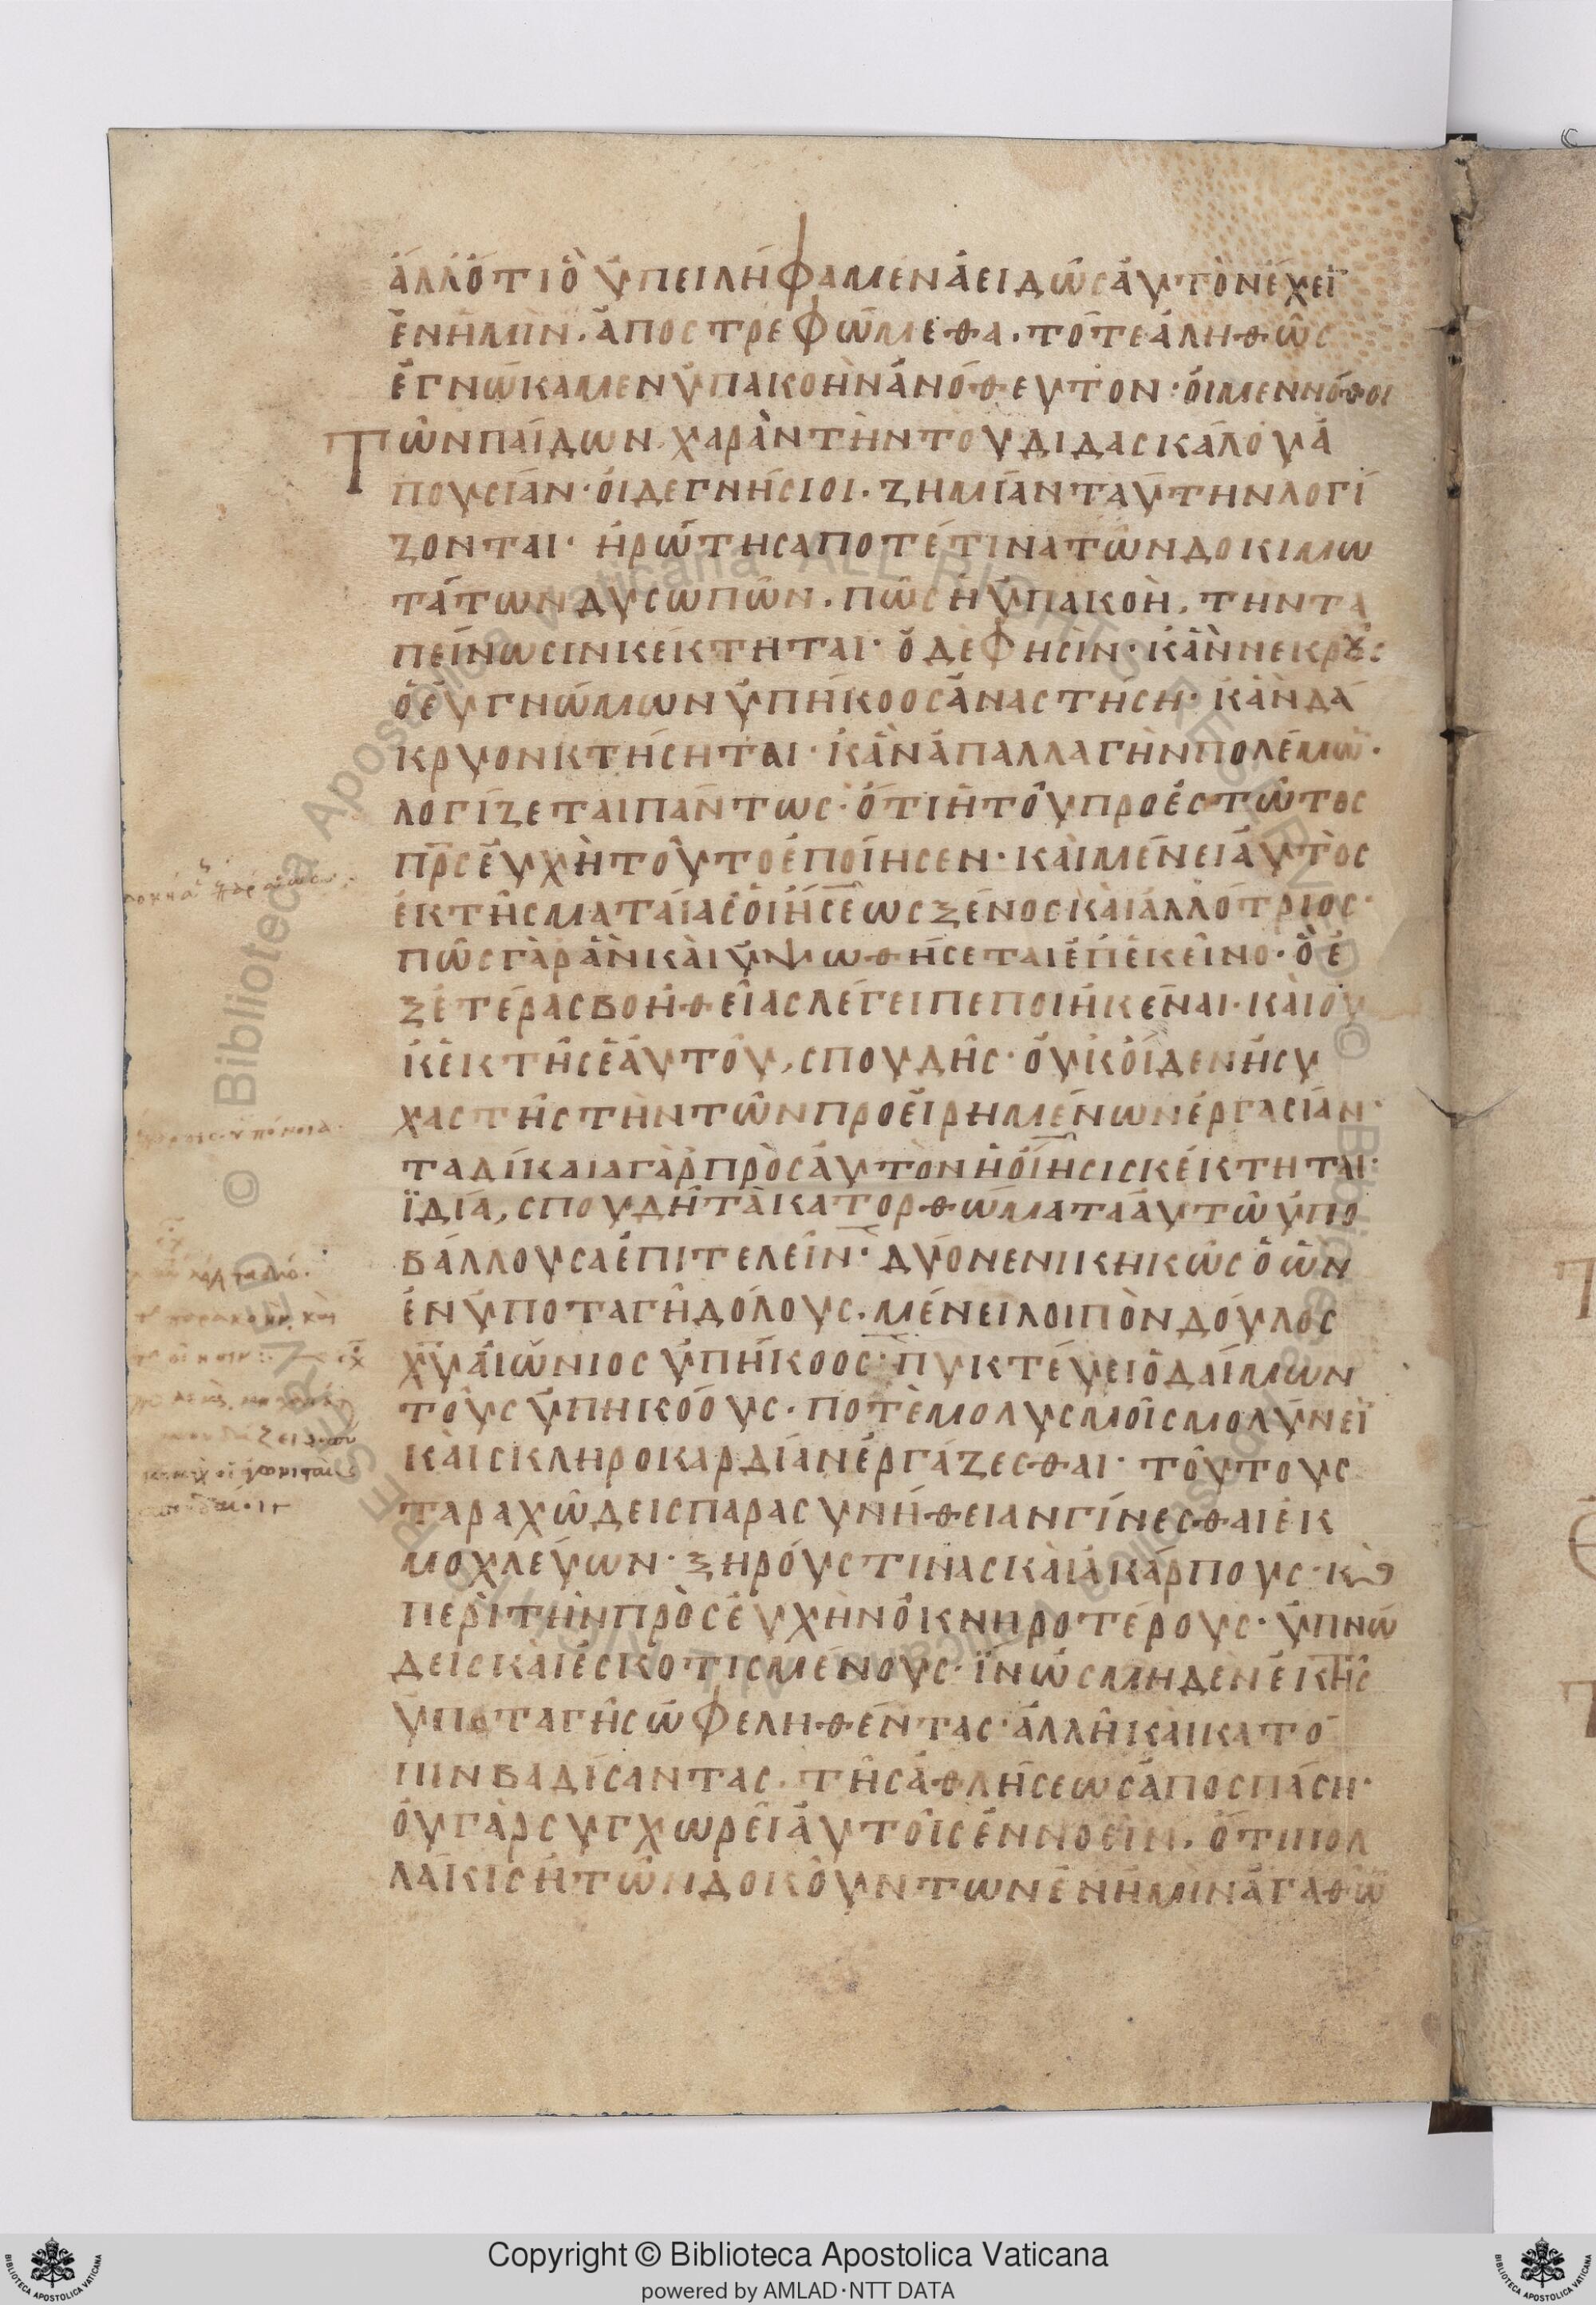 ἀλλότι οὐχ ὑπειλήφαμεν ἀειδῶς αὐτὸν ἔχει
ἐν ἡμῖν. ἀποστρεφώμεθα. τότε ἀληθῶς
ἐγνώκαμεν ὑπακοὴν ἀνόθευτον· οἱ μὲν νόθοι
τῶν παίδων χαρὰν τὴν τοῦ διδασκάλου ἀ
πουσίαν· οἱ δὲ γνήσιοι. ζημίαν ταύτην λογί
ζονται· ἠρώτησά ποτέ τινα τῶν δοκιμω
τάτων δυσωπῶν. πῶς ἡ ὑπακοὴ, τὴν τα
πείνωσιν κέκτηται· ὁ δὲ φησίν· κἂν νεκροὺς
ὁ εὐγνώμων ὑπήκοος ἀναστήσῃ· κἂν δά
κρυον κτήσηται· κἂν ἀπαλλαγὴν πολέμω̅·
λογίζεται πάντως· ὅτι ἡ τοῦ προεστῶτος
π̅ρ̅ς εὐχὴ τοῦτο ἐποίησεν· καὶ μένει αὐτὸς
ἐκ τῆς ματαίας οἰήσεως ξένος καὶ ἀλλότριος·
πῶς γὰρ ἂν καὶ ὑψωθήσεται ἐπ ἐκεῖνο· ὃ ἐ
ξ ἑτέρας βοηθείας λέγει πεποιηκέναι· καὶ οὐ
κ ἐκ τῆς ἑαυτοῦ, σπουδῆς· οὐκ οἶδεν ἡσυ
χαστὴς τὴν τῶν προειρημένων ἐργασίαν·
τα δίκαια γὰρ πρὸς αὐτὸν ἡ οἴησις κέκτηται·
ϊδίᾳ, σπουδῇ τὰ κατορθώματα αὐτῷ ὑπο
βάλλουσα ἐπιτελεῖν· δύο νενικηκὼς ὁ ὢν
ἐν ὑποταγῇ δόλους. μένει λοιπὸν δοῦλος
χ̅υ̅ αἰώνιος ὑπήκοος· πυκτεύει ὁ δαίμων
τοὺς ὑπηκόους. ποτὲ μολυσμοῖς μολύνει
καὶ σκληροκαρδίαν ἐργάζεσθαι· τούτους
ταραχώδεις παρα συνήθειαν γίνεσθαι ἐκ
μοχλεύων· ξηρούς τινας καὶ ἀκάρπους· κ̀
περὶ τὴν προσευχὴν ὀκνηροτέρους· ὑπνώ
δεις καὶ ἐσκοτισμένους· ϊν ὡς μηδὲν ἐκ τῆς
ὑποταγῆς ὠφεληθέντας· ἀλλ ἢ καὶ κατο
πιν βαδίσαντας. τῆς ἀθλήσεως ἀποσπάσῃ·
οὐ γὰρ συγχωρεῖ αὐτοῖς ἐννοεῖν. ὅτι πολ
λάκις ἡ τῶν δοκούντων ἐν ἡμῖν ἀγαθῶ̅
Copyright © Biblioteca Apostolica Vaticana
powered by AMLAD·NTT DATA